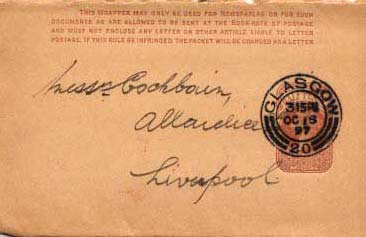 THIS WRAPPER MAY ONLY BE USED FOR NEWSPAPERS, OR FOR SUCH
DOCUMENTS AS ARE ALLOWED TO BE SENT AT THE BOOK-RATE OF POSTAGE
AND MUST NOT ENCLOSE ANY LETTER OR OTHER ARTICLE LIABLE TO LETTER
POSTAGE. IF THIS RULE BE INFRINGED, THE PACKET WILL BE CHARGED AS A LETTER
Messrs Cochbain,
Allardice
Liverpool
GLASGOW
315PM
OC 16
97
20